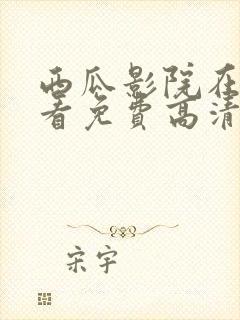 西瓜影院在
看免费高清
宋宇